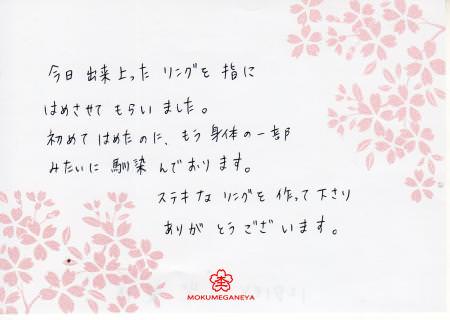 今日出来上ったリングを指に
はめさせてもらいました。
初めてはめたのに、もう身体の一部
みたいに馴染んでおります。
ステキなリングを作って下さり
ありがとうございます。
MOKUMEGANEYA